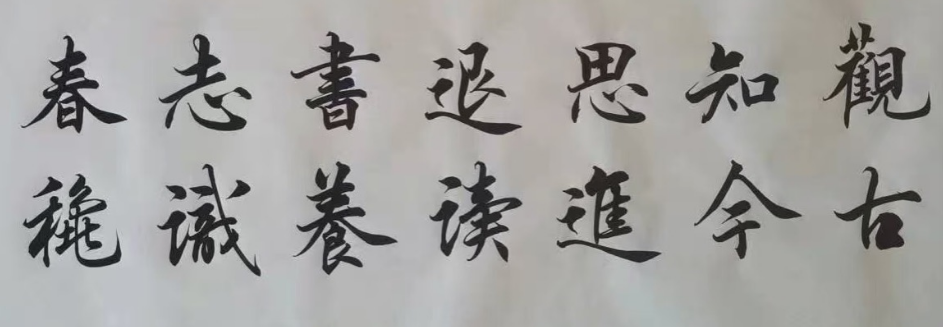 觀古
知今
思進
退读
書養
志識
春穐